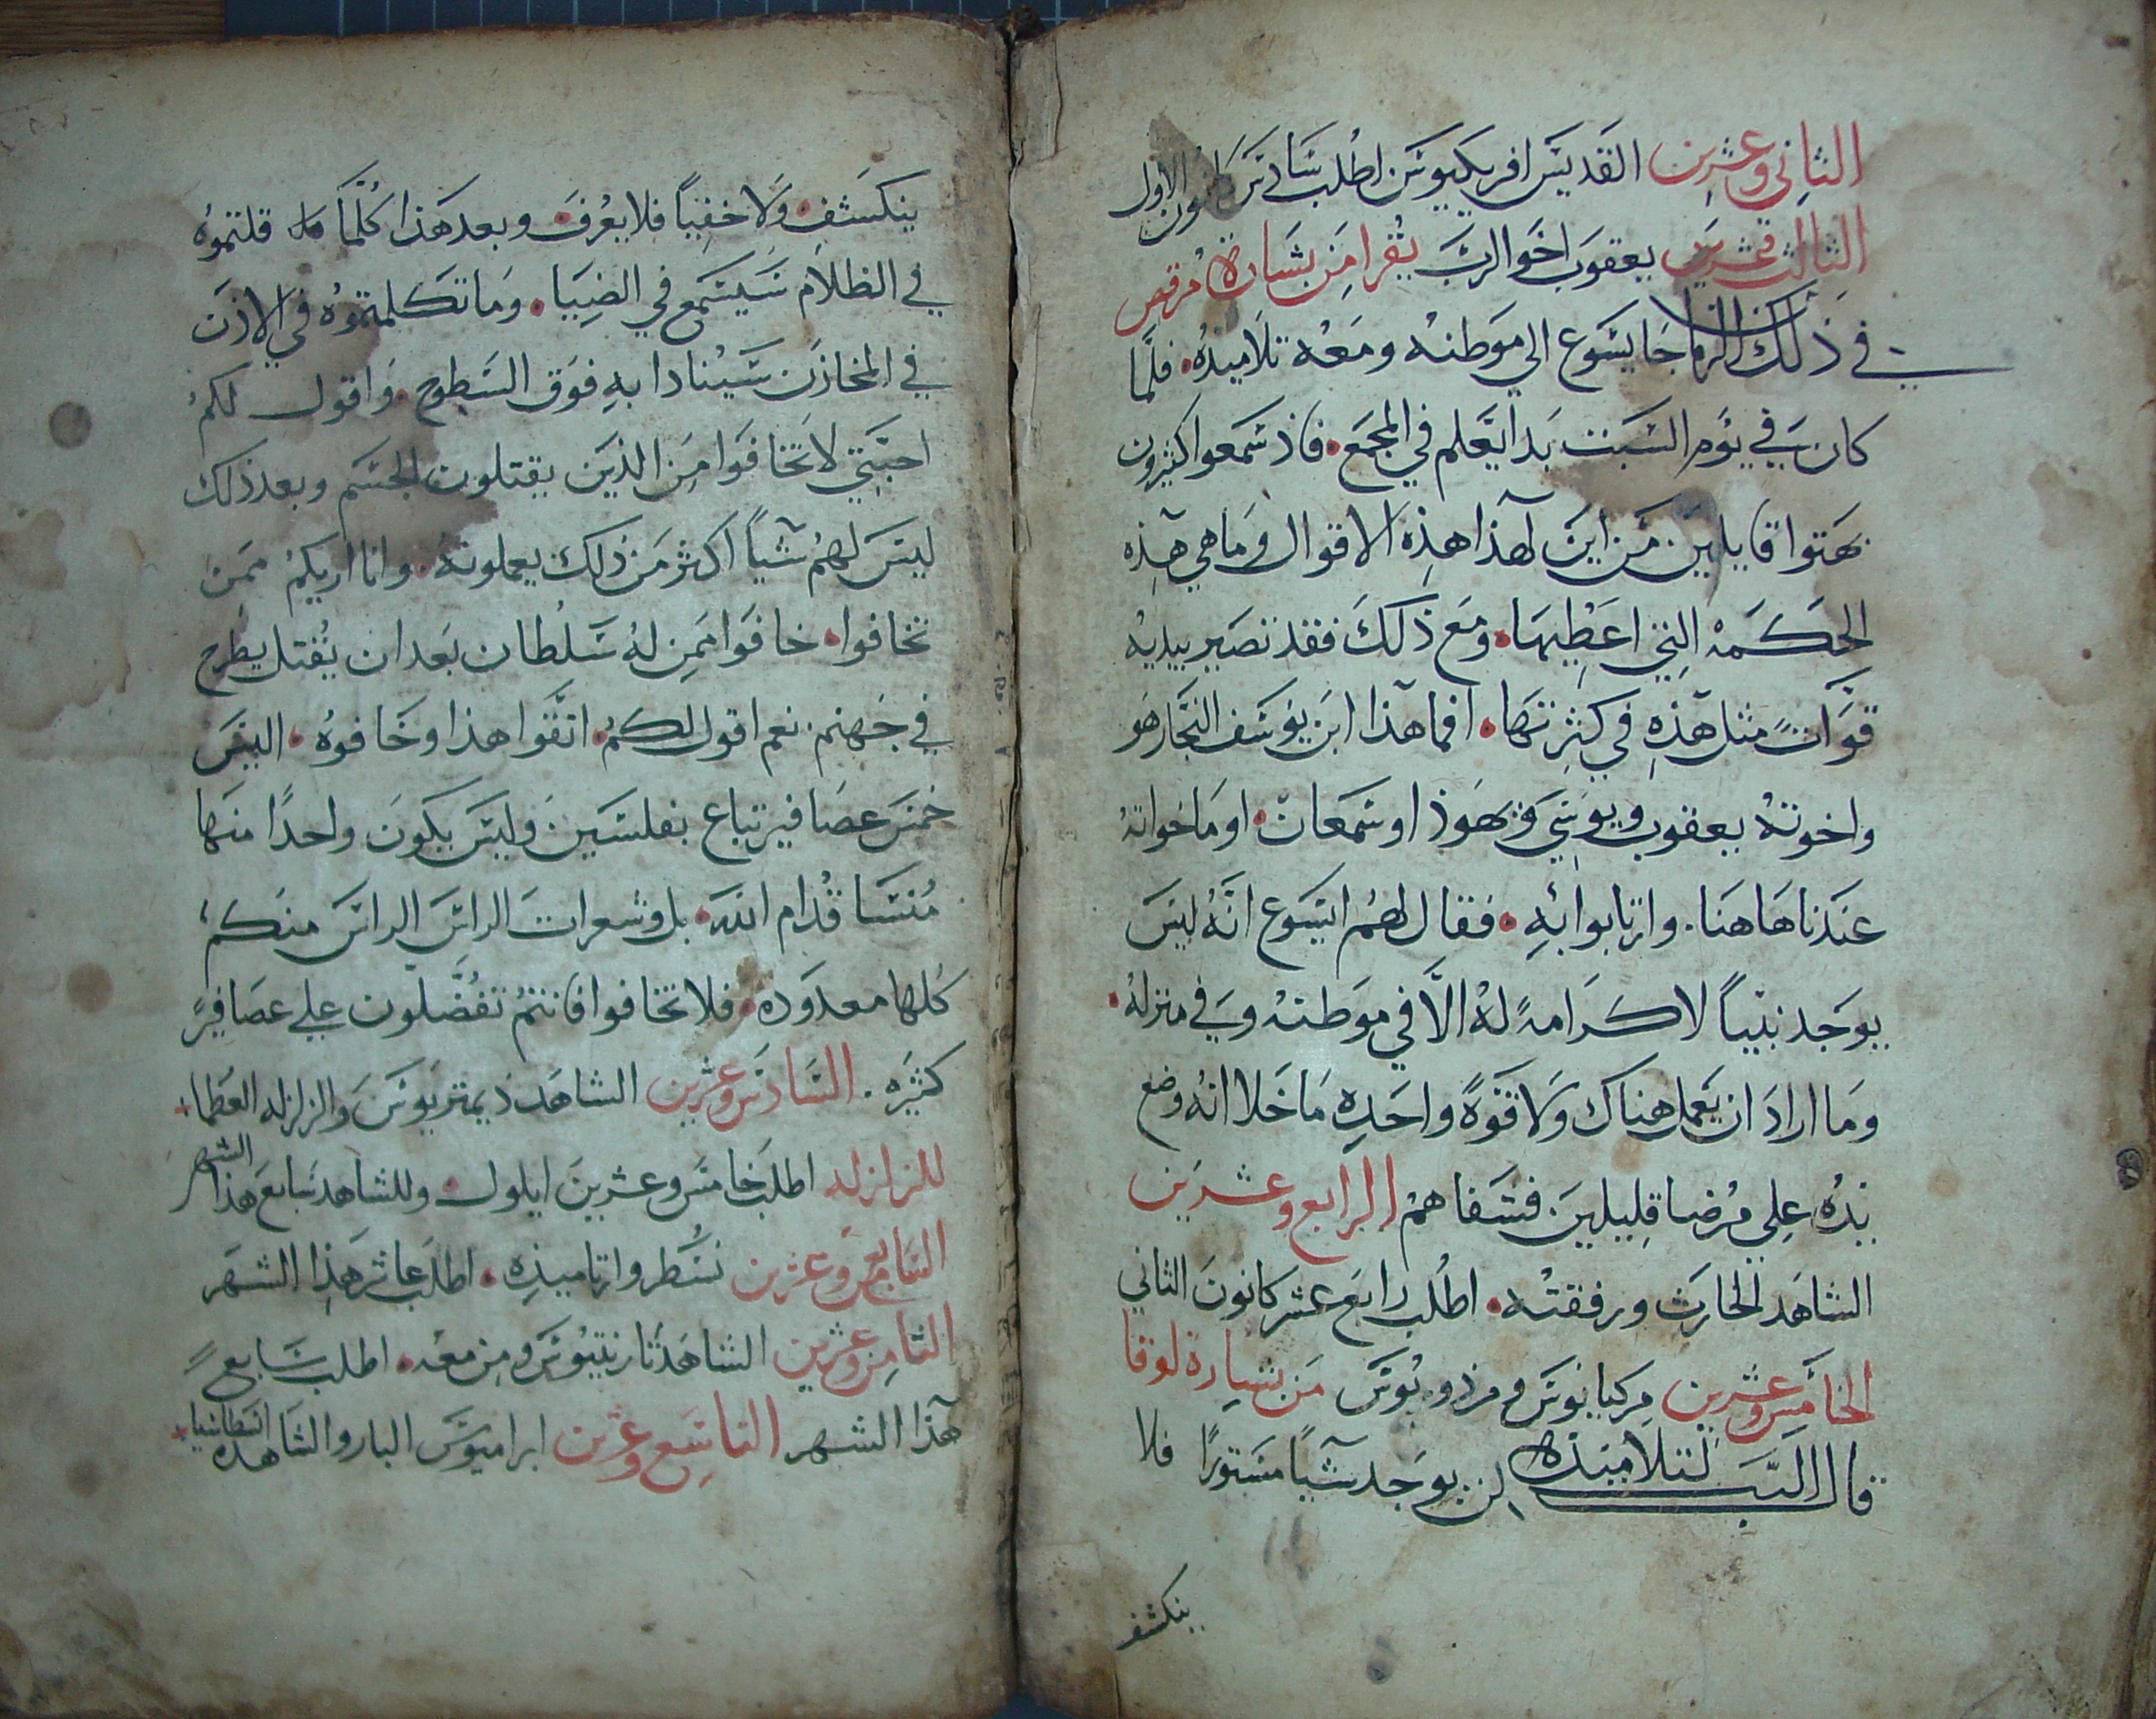 الثاني وعشرين القديس افريكيوس اطلب سادس كانون الاول
الثالث وعشرين يعقوب اخو الرب يقرا من بشارة مرقص
في ذلك الزمان جا يسوع الي موطنه ومعه تلاميذه فلما
كان في يوم السبت بدا يعلم في المجمع فاذ سمعوا كثيرون
بهتوا قايلين من اين لهذا هذه الاقوال وما هي هذه
الحكمه التي اعطيها ومع ذلك فقد تصير بيديه
قوات مثل هذه في كثرتها افما هذا ابن يوسف النجار هو
واخوته يعقوب ويوسي ويهوذا وسمعان اوما خواته
عندنا هاهنا وارتابوا به فقال لهم ايسوع انه ليس
يوجد نبيا لا كرامه له الا في موطنه وفي منزله
وما اراد ان يعمل هناك ولا قوة واحده ما خلا انه وضع
يده علي مرضا قليلين فشفاهم الرابع وعشرين
الشاهد الحارث ورفقته اطلب رابع عشر كانون الثاني
الخامس وعشرين مركيانوس ومرذوبوس من بشارة لوقا
قال الرب لتلاميذه لن يوجد شيا مستورا فلا
ينكشف
ينكشف ولا خفيا فلا يعرف وبعد هذا كلما قلتموه
في الظلام سيسمع في الضيا وما تكلمتموه في الاذن
في المخازن سينادا به فوق السطوح واقول لكم
احبتي لا تخافوا من الذين يقتلون الجسم وبعد ذلك
ليس لهم شيا اكثر من ذلك يعملونه وانا اريكم ممن
تخافوا خافوا ممن له سلطان بعد ان يقتل يطرح
في جهنم نعم اقول لكم اتقوا هذا وخافوه اليس
خمس عصافير تباع بفلسين وليس يكون واحدا منها
منسا قدام الله بل وشعرات الراس الراس منكم
كلها معدوده فلا تخافوا فانتم تفضلون علي عصافير
كثيره السادس وعشرين الشاهد ذيمتريوس والزلزله العظما
للزلزله اطلب خامس وعشرين ايلول وللشاهد سابع هذا الشهر
السابع وعشرين نسطر وارتاميذه اطلب عاشر هذا الشهر
الثامن وعشرين الشاهد تارنتيوس ومن معه اطلب سابع
هذا الشهر التاسع وعشرين ابراميوس البار والشاهده انسطاسيا